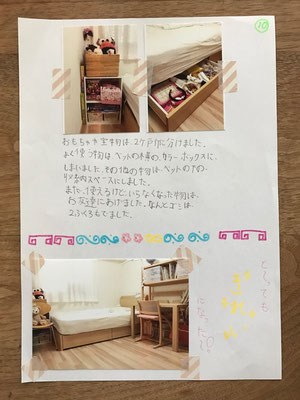 おもちゃや宝物は、2ヶ所に分けました。
よく使う物はベットの横のカラーボックスに、
しまいました。その他の物はベットの下の
収納スペースにしました。
また、使えるけど、いらなくなった物は、
お友達にあげました。なんとゴミは
2ふくろもでました。
とっても
きれい
になったよ